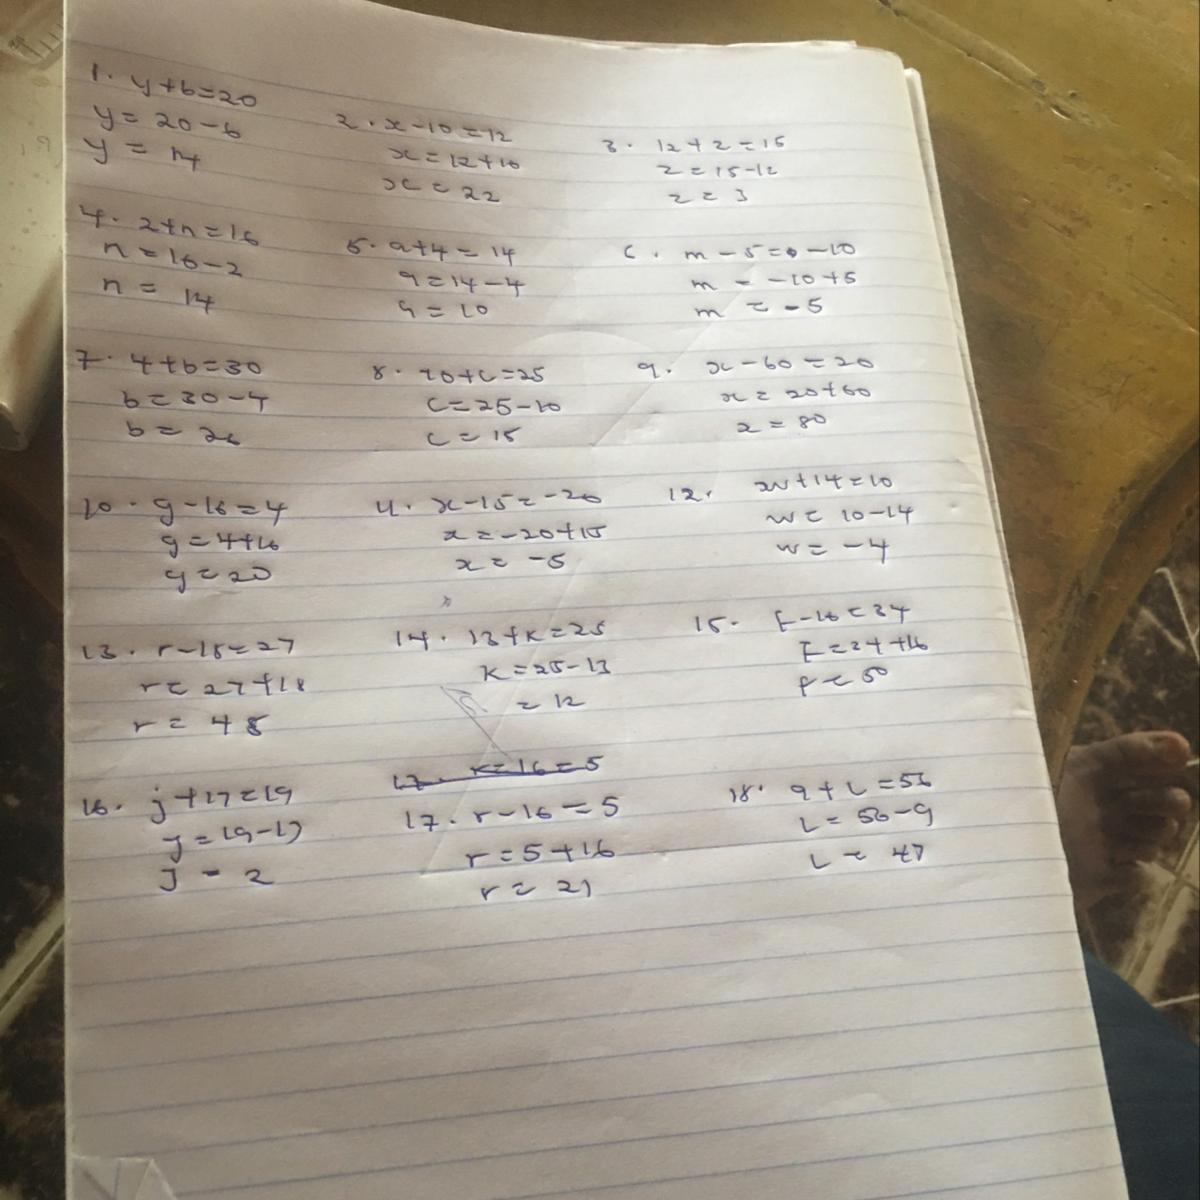 1. y+6=20
y = 20-6
y = 14
2. x-10=12
x=12+10
x = 22
3. 12+z=15
z=15-12
z = 3
4. 2+n=16
n=16-2
n = 14
5. a+4=14
a=14-4
a=10
6. m-5=-10
m = -10+5
m = -5
7. 4+b=30
b=30-4
b=26
8. 10+c=25
c=25-10
c=15
9. x-60=20
x=20+60
x=80
10. g-16=4
g=4+16
g=20
11. x-15=-20
x=-20+15
x= -5
12. w+14=10
w= 10-14
w= -4
13. r-18=27
r= 27+18
r= 48
14. 13+k=25
k=25-13
= 12
15. F-16=34
F=34+16
F=50
16. j+17=19
j=19-17
j = 2
17. k-16=5
17. r-16=5
r=5+16
r= 21
18. 9+L=56
L=56-9
L= 47